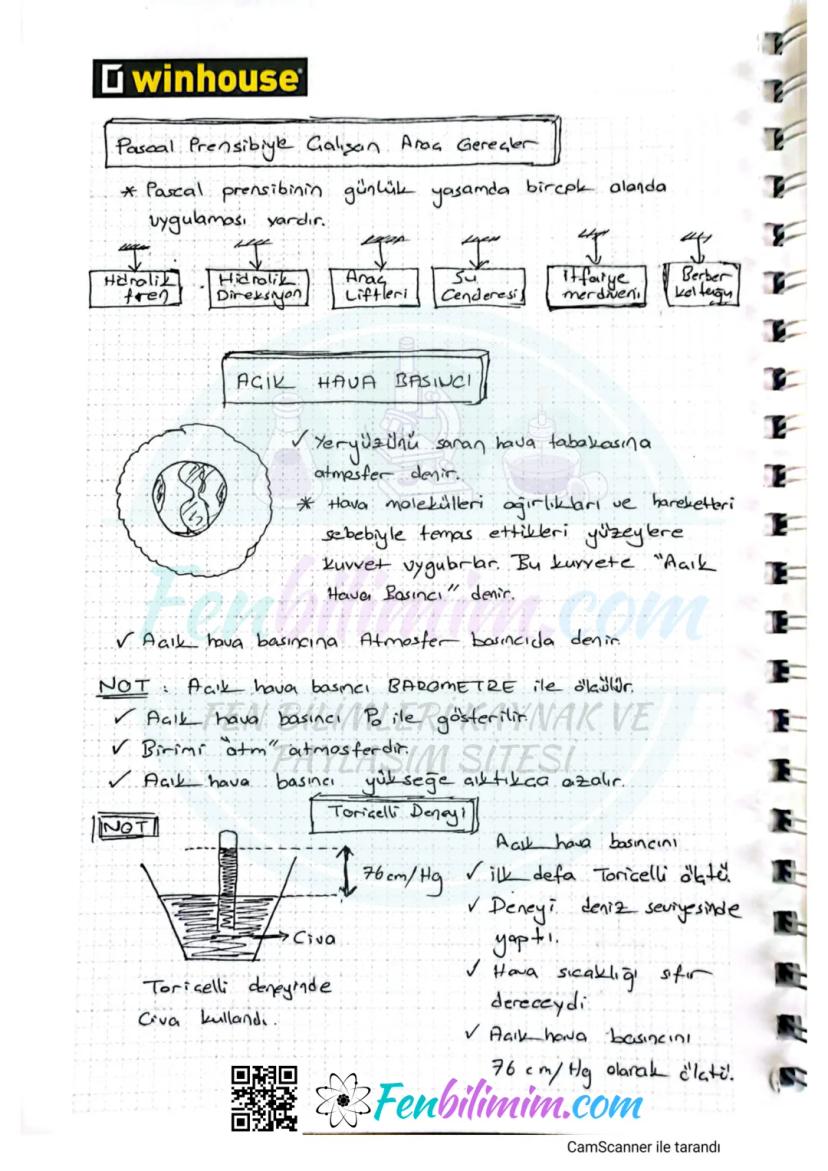 winhouse
Pascal Prensibiyle Çalışan Araç Gereçler
* Pascal prensibinin günlük yaşamda birçok alanda
uygulaması vardır.
Hidrolik fren
Hidrolik Direksiyon
Araç Liftleri
Su Cenderesi
İtfaiye merdiveni
Berber koltuğu
AÇIK HAVA BASINCI
✓ Yeryüzünü saran hava tabakasına
atmosfer denir.
* Hava molekülleri ağırlıkları ve hareketleri
sebebiyle temas ettikleri yüzeylere
kuvvet uygularlar. Bu kuvvete "Açık
Hava Basıncı" denir.
Fenbilimim.com
✓ Açık hava basıncına Atmosfer basıncıda denir.
NOT : Açık hava basıncı BAROMETRE ile ölçülür.
✓ Açık hava basıncı Po ile gösterilir.
FEN BİLİMLERİ KAYNAK VE
✓ Birimi "atm" atmosferdir.
PAYLAŞIM SİTESİ
✓ Açık hava basıncı yükseğe çıktıkça azalır.
NOT
Toriçelli Deneyi
76 cm/Hg
Civa
Toriçelli deneyinde
Civa kullandı.
Açık hava basıncını
✓ ilk defa Toriçelli ölçtü.
✓ Deneyi deniz seviyesinde
yaptı.
✓ Hava sıcaklığı sıfır
dereceydi
✓ Açık hava basıncını
76 cm/Hg olarak ölçtü.
Fenbilimim.com
CamScanner ile tarandı